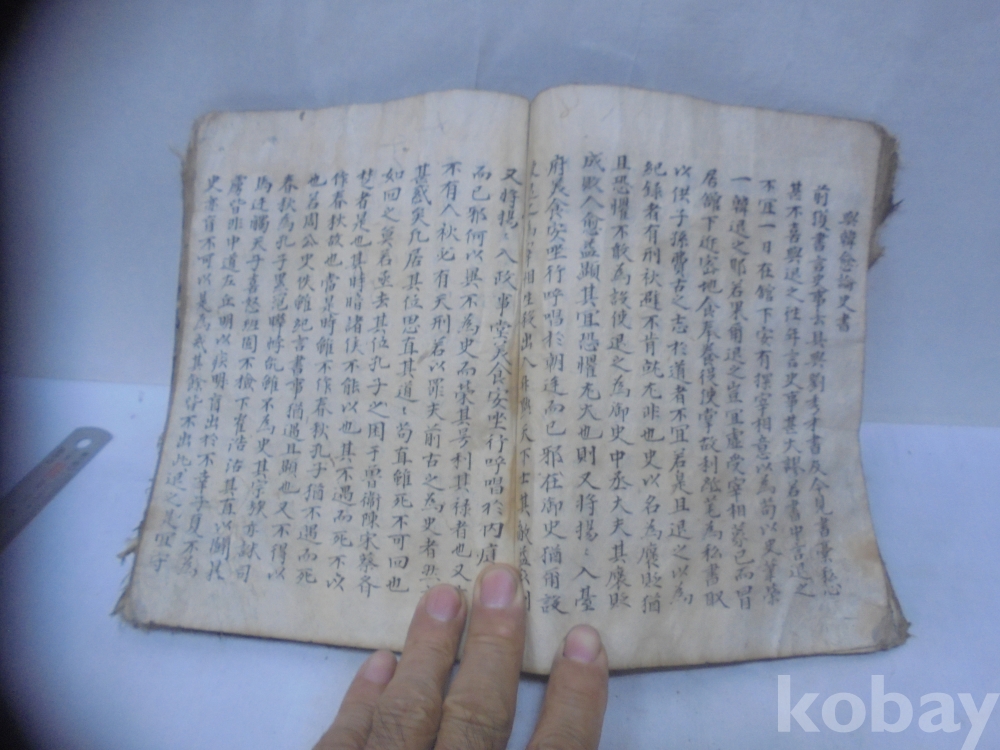 與韓愈論史書
前後書言史事云具與劉秀才書及今見書藁私心
甚不喜與退之往年言史事甚大謬若書中言退之
不宜一日在館下安有探宰相意以為苟以史筆榮
一韓退之耶若果爾退之豈宜虛受宰相榮己而冒
居館下近密地食奉養役使掌故利紙筆為私書取
以供子孫費古之志於道者不宜若是且退之以為
紀錄者有刑秋避不肯就尤非也史以名為褒貶猶
且恐懼不敢為設使退之為御史中丞大夫其褒貶
成敗人愈益顯其宜恐懼尤大也則又將揚〻入臺
府美食安坐行呼唱於朝廷而已邪在御史猶爾設
相生殺出入天下士其敵益
又將揚〻入政事堂美食安坐行呼唱於內庭
而已邪何以異不為史而榮其号利其祿者也又
不有人秋必有天刑若以罪夫前古之為史者然
甚惑矣凡居其位思直其道〻苟直雖死不可回也
如回之莫若亟去其位孔子之困于魯衛陳宋蔡齊
楚者是也其時暗諸侯不能以也其不遇而死不以
作春秋故也當是時雖不作春秋孔子猶不遇而死
也若周公史佚雖紀言書事猶遇且顯也又不得以
春秋為孔子累范曄悖亂雖不為史其宗族亦誅司
馬遷觸天子喜怒班固不檢下崔浩沽其直以鬬暴
虜皆非中道左丘明以疾明盲出於不幸子夏不為
史亦盲不可以是為戒其餘皆不出此退之是宜守
kobay